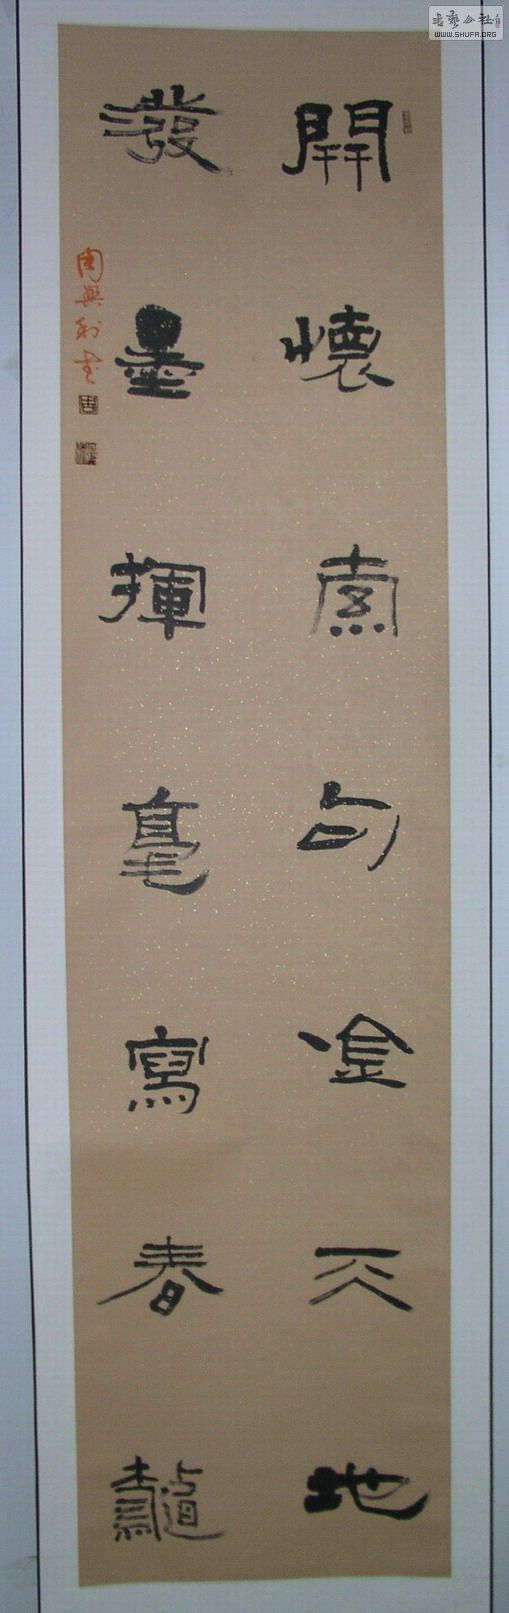 開懷索句唫天地
潑墨揮毫寫春龝
周興利書
書藝公社
WWW.SHUFA.ORG